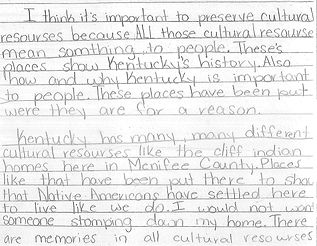 I think it's important to preserve cultural
resourses because All those cultural resourse
mean somthing to people. These's
places show Kentucky's history. Also
how and why Kentucky is important
to people. These places have been put
were they are for a reason.
Kentucky has many, many different
cultural resourses like the cliff indian
homes here in Menifee County. Places
like that have been put there to show
that Native Americans have settled here
to live like we do. I would not want
someone stomping down my home. There
are memories in all cultural resourses